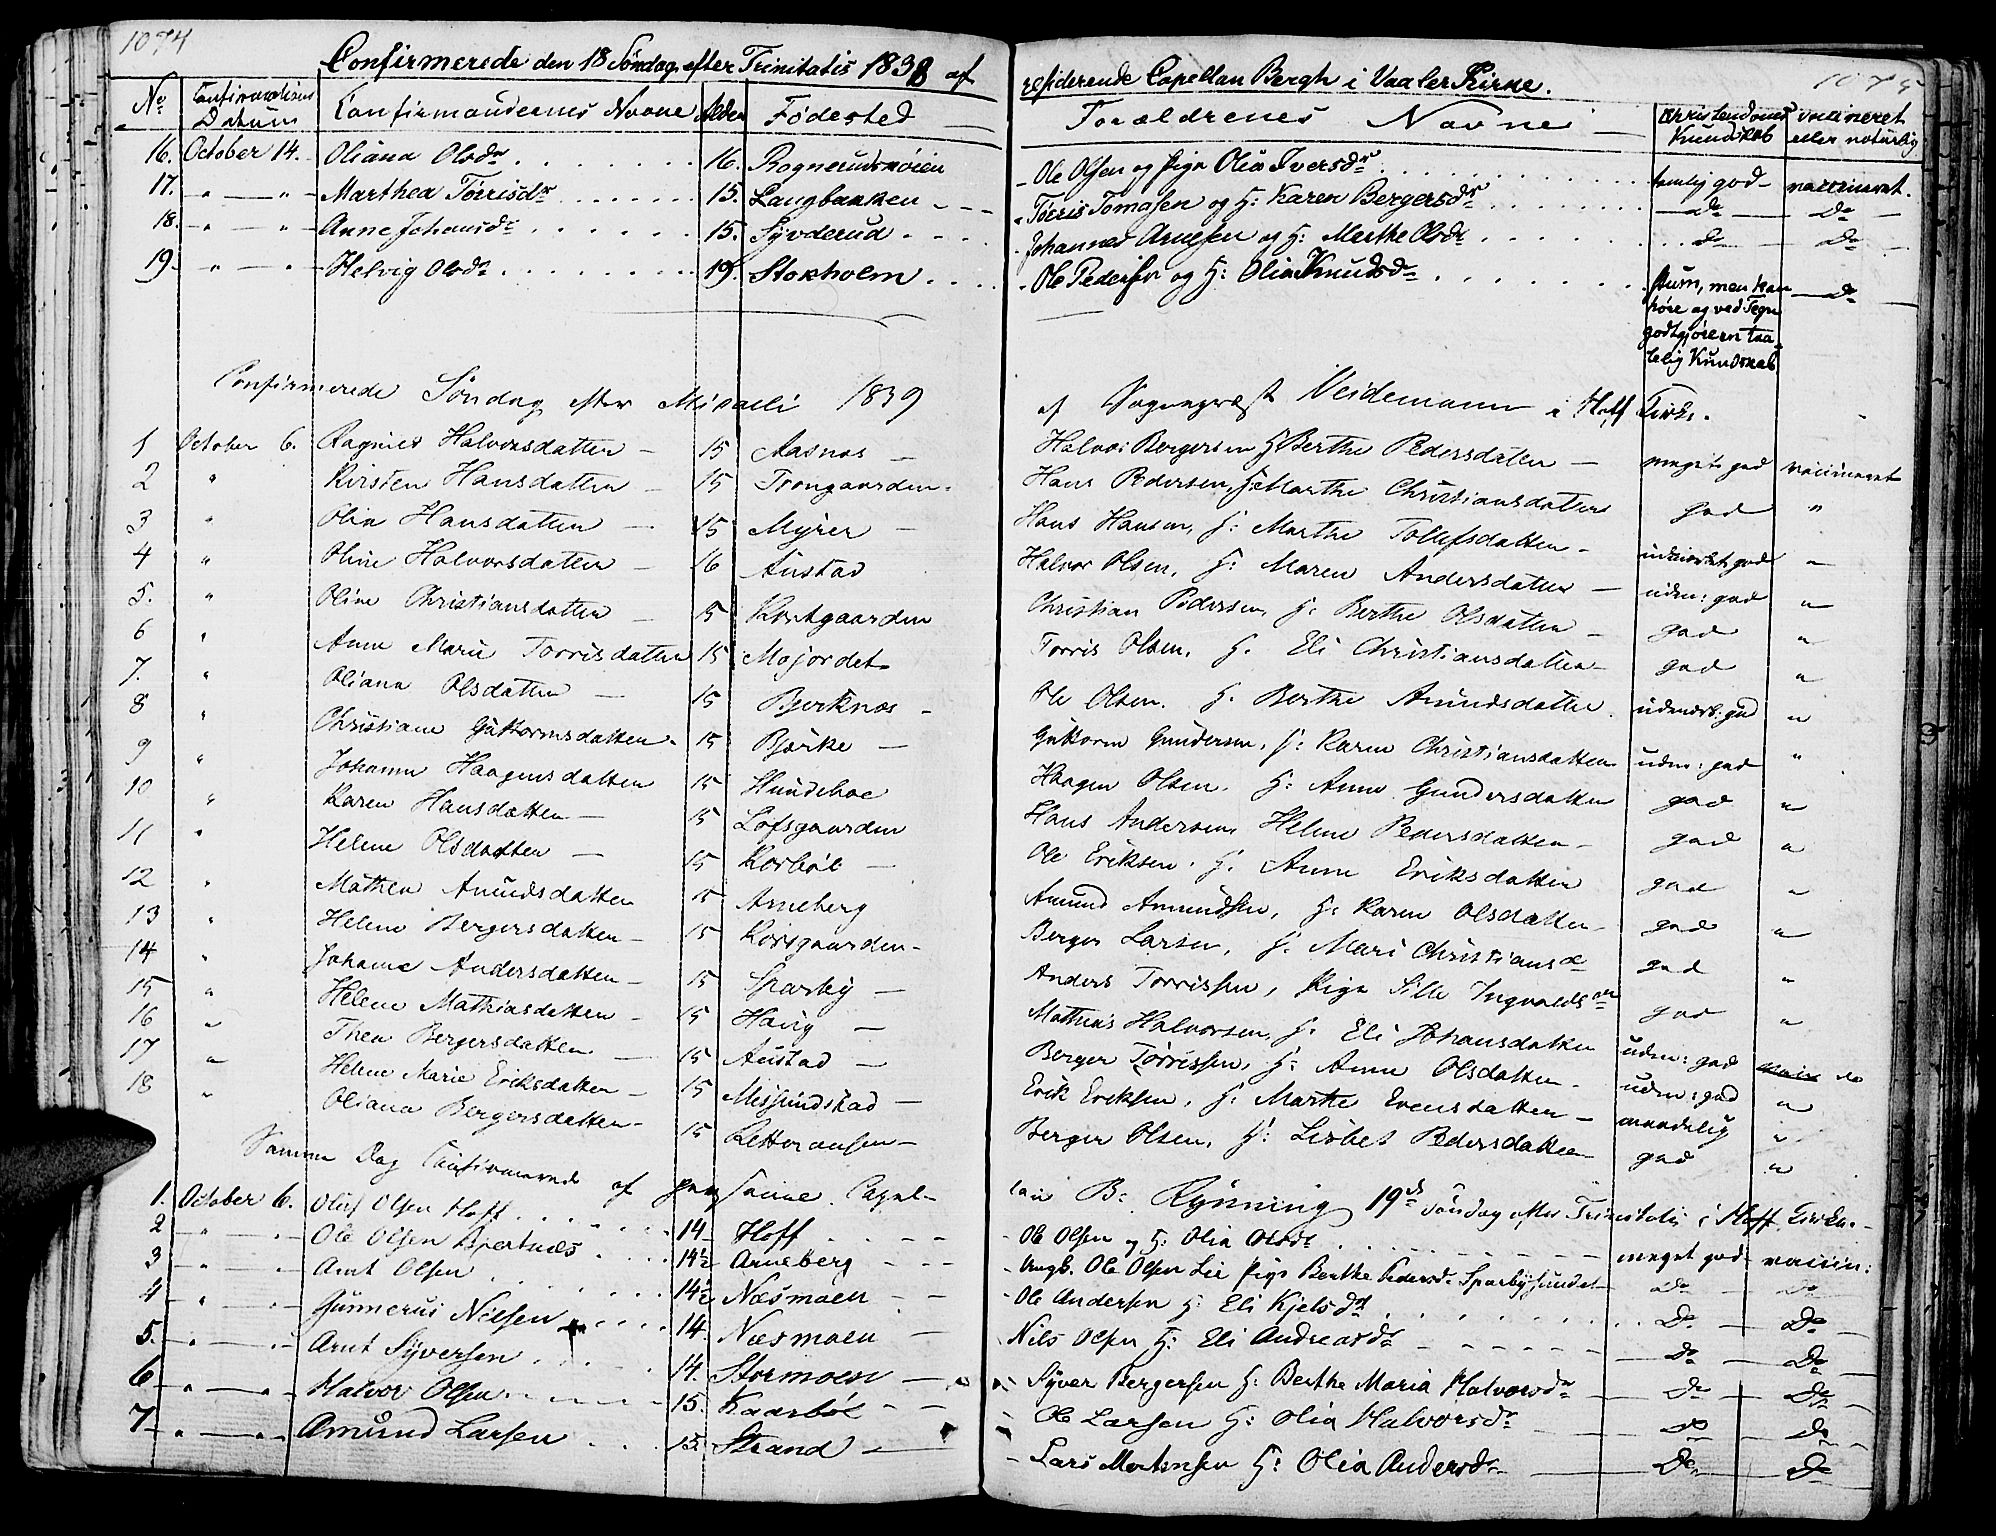 1074
1075
Confirmerede den 18 Søndag efter Trinitatis 1838 af residerende Capellan Bergh i Vaaler Kirke.
No Confirmations Datum Confirmandernes Navne Alder Fødested Forældrenes Navne Christendoms Kundskab vaccineret eller naturlig
16. October 14. Oliana Olsdr 16. Rognerudmoien Ole Olsen og Pige Olia Iversdr temlig god vaccineret.
17. " " Marthea Tørrisdr 15. Langbakken Tørris Tomasen og H: Karen Bergersdr Do Do
18. " " Anne Johansdr 15. Syvderud Johannes Arnesen og H: Marthe Olsdr do Do
19. " " Helvig Olsdr 19. Stokholm Ole Pedersen og H: Olia Knudsdr stum, men kan høre og ved Tegn godtgjøre en taalelig Kundskab Do
Confirmerede Søndag efter Misaeli 1839 af Sogneprest Veidemann i Hoff Kirke.
1 October 6. Ragnild Halvorsdatter 15 Aasnæs Halvor Bergersen H Berthe Pedersdatter meget god vaccineret
2 " Kirsten Hansdatter 15 Trongaarden Hans Pedersen, H: Marthe Christiansdatter god "
3 " Olia Hansdatter 15 Myrer Hans Hansen, H: Marthe Tollefsdatter udmærket god "
4 " Oline Halvorsdatter 16 Austad Halvor Olsen, H: Maren Andersdatter udm: god "
5. " Oline Christiansdatter 15 Kortgaarden Christian Pedersen, H: Berthe Olsdatter god "
6 " Anne Marie Torrisdatter 15 Mojordet Torris Olsen, H. Eli Christiansdatter god "
7. " Oliana Olsdatter 15 Bjerknæs Ole Olsen. H: Berthe Amundsdatter udmærk: god "
8 " Christiane Guttormsdatter 15 Bjørke Guttorm Gundersen, H: Karen Christiansdatter udm: god "
9 " Johanne Haagensdatter 15 Hundehoe Haagen Olsen, H: Anne Gundersdatter god "
10 " Karen Hansdatter 15 Lofsgaarden Hans Andersen, Helene Pedersdatter god "
11 " Helene Olsdatter 15 Korbøl Ole Eriksen, H: Anne Eriksdatter god "
12 " Mathea Amundsdatter 15 Arneberg Amund Amundsen, H: Karen Olsdatter god "
13 " Helene Bergersdatter 15 Korsgaarden Berger Larsen, H: Mari Christiansdr god "
14 " Johanne Andersdatter 15 Sparby Anders Torrissen, Pige Sille Ingvaldsdr god "
15 " Helene Mathiasdatter 15 Haug Mathias Halvorsen, H: Eli Johansdatter udm: god do
16 " Thea Bergersdatter 15 Austad Berger Tørrissen, H: Anne Olsdatter udm: god "
17 " Helene Marie Eriksdatter 15 Melsundstad Erik Eriksen, H: Marthe Evensdatter maadelig "
18 " Oliana Bergersdatter 15 Berger Olsen, H: Lisbet Pedersdatter god "
Samme Dag Confirmerede af personne. Capellan B: Rynning 19de Søndag efter Trinitatis i Hoff Kirke.
1. October 6. Oluf Olsen Hoff 14 Hoff Ole Olsen og H: Olia Olsdr meget god vaccin:
2 " " Ole Olsen Bjertnæs 14½ Arneberg Ungk. Ole Olsen Lie Pige Berthe Pedersdr Sparbysundet Do Do
3 " " Arnt Olsen 14½ Næsmoen Ole Andersen H: Eli Kjelsdr Do Do
4 " " Gunnerus Nilsen 14. Næsmoen Nils Olsen H: Eli Andreasdr Do Do
5. " " Arnt Syversen 14. Stormoen Syver Bergersen H: Berthe Maria Halvorsdr Do Do
6 " " Halvor Olsen 15. Kaarbøl Ole Larsen H: Olia Halvorsdr Do Do
7 " " Amund Larsen 15. Strand Lars Mortensen H: Olia Andersdr Do Do